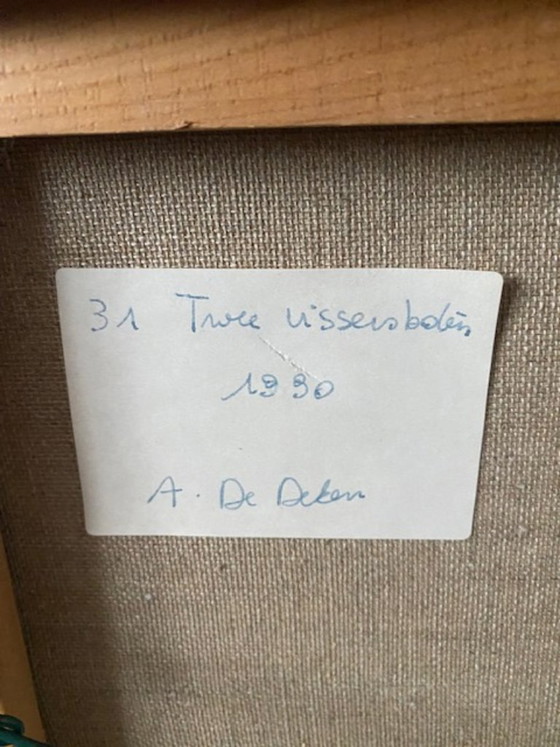 31 Twee vissersboten
1990
A. De Deken